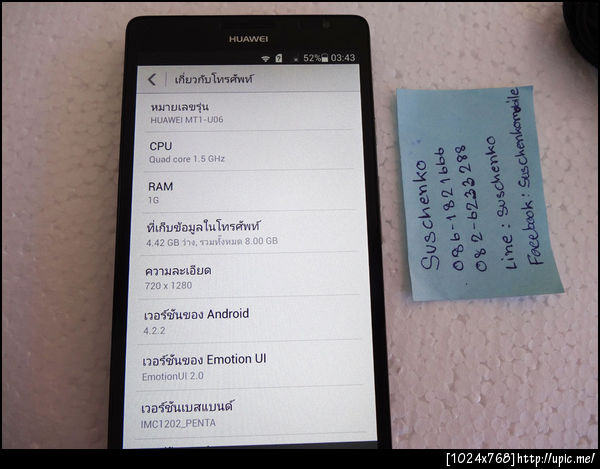 HUAWEI
52% 03:43
เกี่ยวกับโทรศัพท์
หมายเลขรุ่น
HUAWEI MT1-U06
CPU
Quad core 1.5 GHz
RAM
1G
ที่เก็บข้อมูลในโทรศัพท์
4.42 GB ว่าง, รวมทั้งหมด 8.00 GB
ความละเอียด
720 x 1280
เวอร์ชันของ Android
4.2.2
เวอร์ชันของ Emotion UI
EmotionUI 2.0
เวอร์ชันเบสแบนด์
IMC1202_PENTA
Suschenko
086-1821666
082-6233288
Line : suschenko
Facebook : Suschenkomobile
[1024x768]http://upic.me/